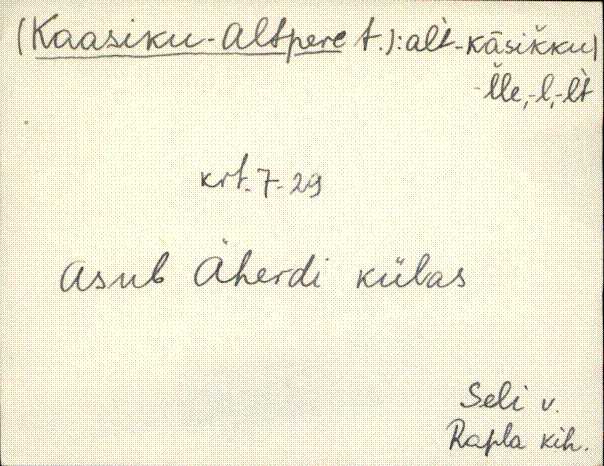 (Kaasiku-Altpere t.): al̀t-kāsik̆ku|
-l̆le, -l, -l̀t
krt. 7-29
Asub Äherdi külas
Seli v.
Rapla kih.